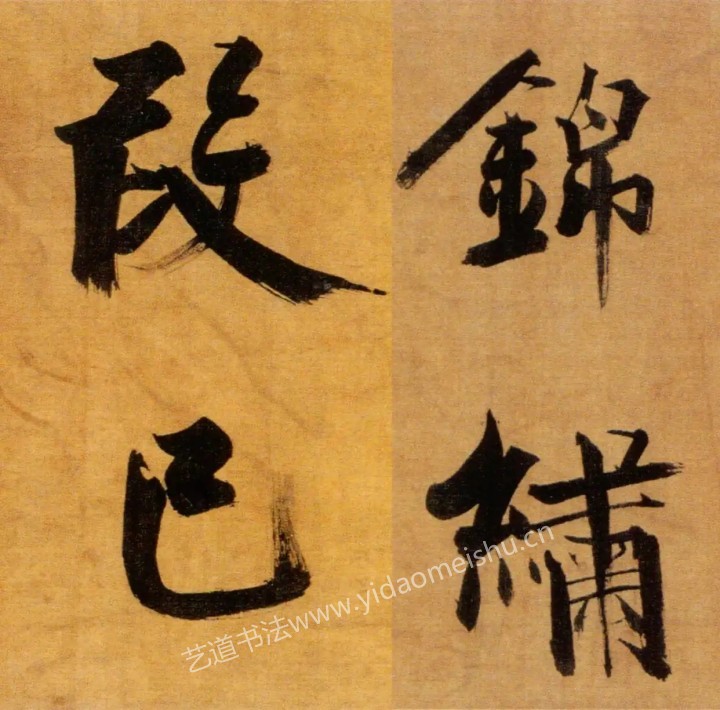 錦繡
段已
艺道书法www.yidaomeishu.cn